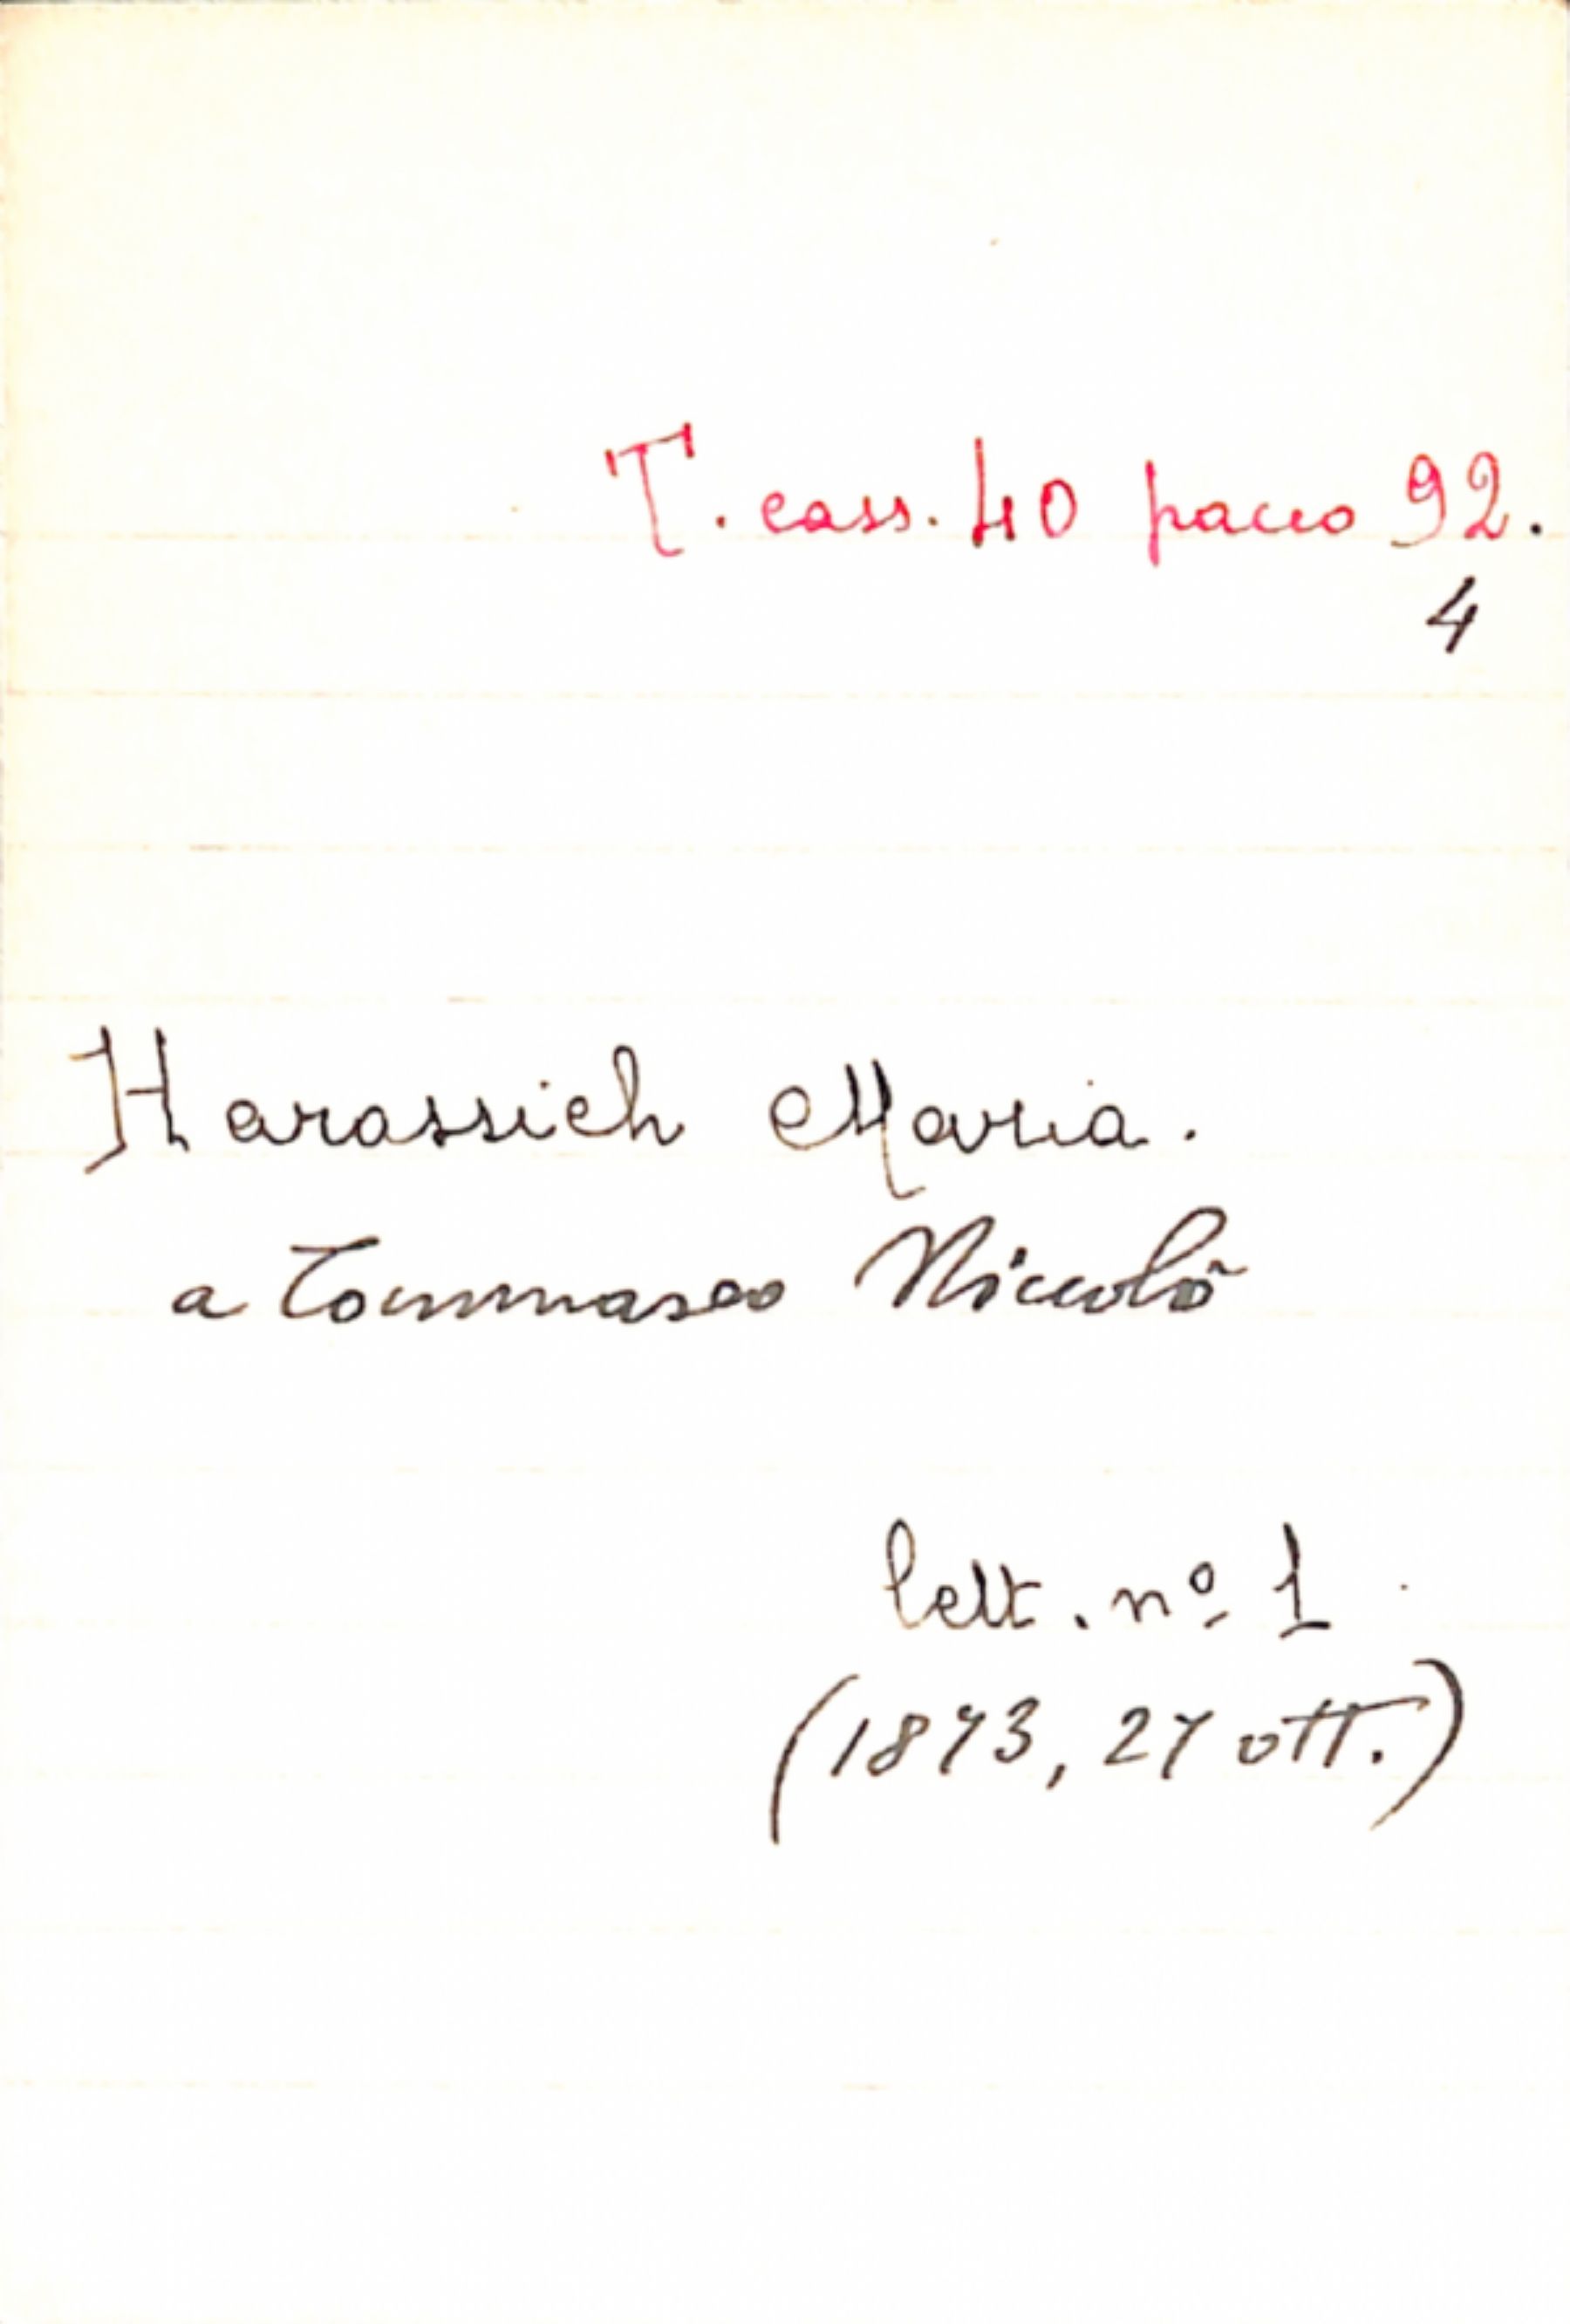 T. cass. 40 pacco 92.
4
Harassich Maria.
a Tommaseo Niccolò
lett. nº 1
(1873, 27 ott.)